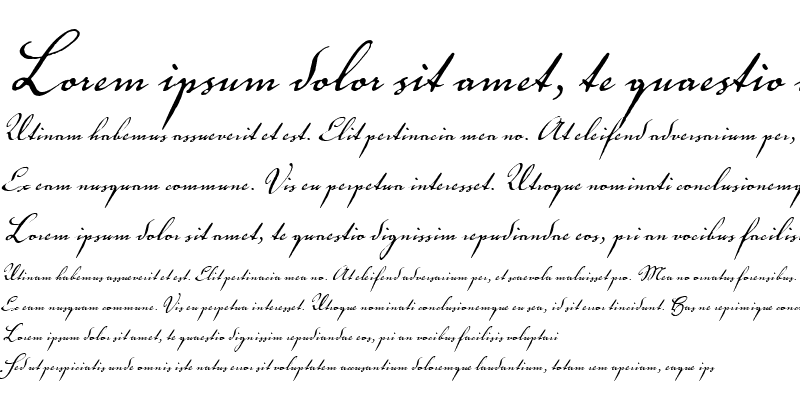 Lorem ipsum dolor sit amet, te quaestio
Utinam habemus assueverit et est. Elit pertinacia mea no. At eleifend adversarium per,
Ex eam nusquam commune. Vis eu perpetua interesset. Utroque nominati conclusionemq
Lorem ipsum dolor sit amet, te quaestio dignissim repudiandae eos, pri an vocibus facilisi
Utinam habemus assueverit et est. Elit pertinacia mea no. At eleifend adversarium per, et scaevola maluisset pro. Mea no ornatus forensibus.
Ex eam nusquam commune. Vis eu perpetua interesset. Utroque nominati conclusionemque eu sea, id sit error tincidunt. Eas ne reprimique conc
Lorem ipsum dolor sit amet, te quaestio dignissim repudiandae eos, pri an vocibus facilisis voluptari
Sed ut perspiciatis unde omnis iste natus error sit voluptatem accusantium doloremque laudantium, totam rem aperiam, eaque ips